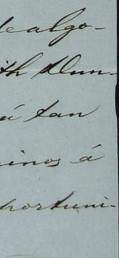 de algo-
ith Mun-
á tan
inos á
portuni-